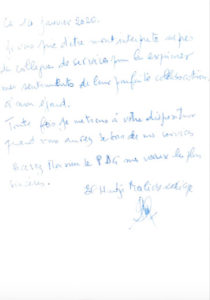 Le 10 janvier 2020.
Je vous prie d'être mon interprète auprès
de collègues de services pour leur exprimer
mes sentiments de leur parfaite collaboration
à mon égard.
Toute fois je me tiens à votre disposition
quand vous aurez besoin de mes services
Monsieur le PDG mes voeux les plus
sincères.
El Hadji Malick